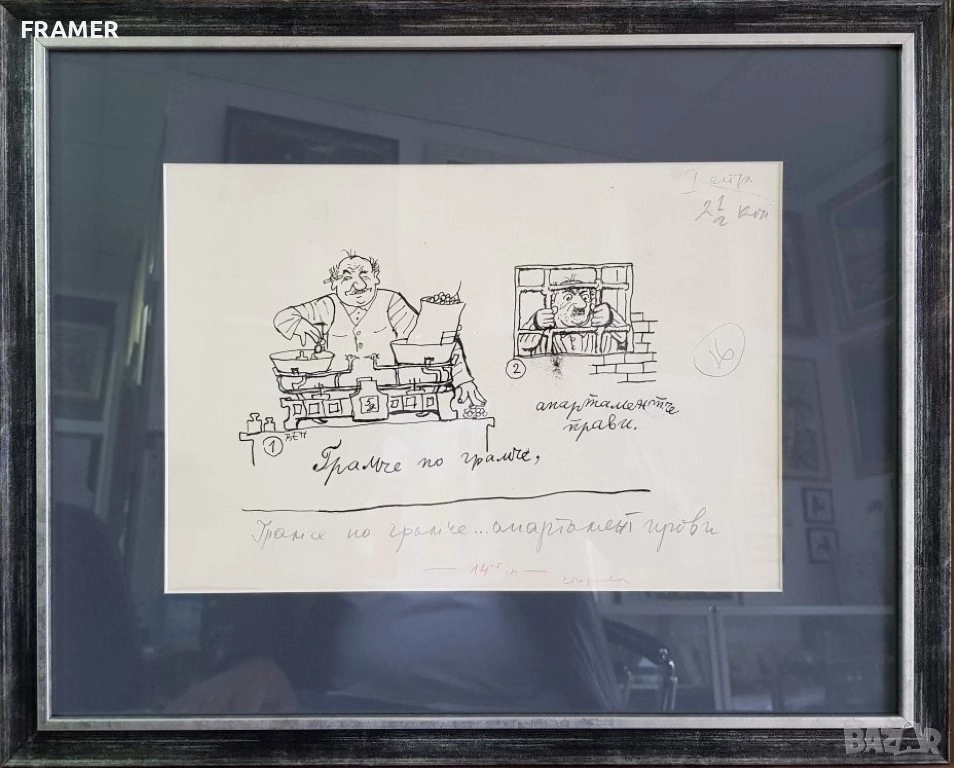 FRAMER
I стр
2 1/2 кол
16
1
ВЕН
Грамче по грамче,
2
апартаментче
прави.
Грамче по грамче... апартамент прави
14
BAZAR